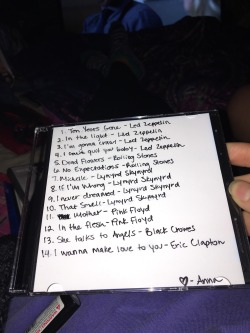 1. Ten Years Gone - Led Zeppelin
2. In the light - Led Zeppelin
3. I'm gonna crawl - Led Zeppelin
4. I can't quit you baby - Led Zeppelin
5. Dead Flowers - Rolling Stones
6. No Expectations - Rolling Stones
7. Michelle - Lynyrd Skynyrd
8. If I'm Wrong - Lynyrd Skynyrd
9. I never dreamed - Lynyrd Skynyrd
10. That Smell - Lynyrd Skynyrd
11. Mother - Pink Floyd
12. In the flesh - Pink Floyd
13. She talks to Angels - Black Crowes
14. I wanna make love to you - Eric Clapton
♡ - Anna